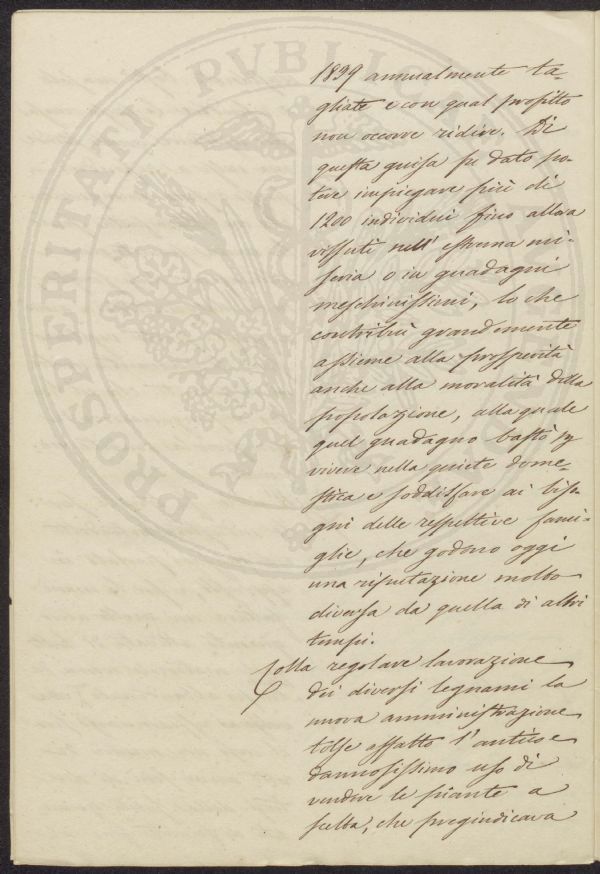 1839 annualmente ta-
gliate e con qual profitto
non occorre ridire. Di
questa guisa fu dato po-
tere impiegare più di
1200 individui fino allora
vissuti nell' estrema mi-
seria o in guadagni
meschinissimi, lo che
contribuì grandemente
assieme alla prosperità
anche alla moralità della
popolazione, alla quale
quel guadagno bastò
vivere nella quiete dome-
stica e soddisfare ai biso-
gni delle respettive fami-
glie, che godono oggi
una riputazione molto
diversa da quella di altri
tempi.
Colla regolare lavorazione
dei diversi legnami la
nuova amministrazione
tolse affatto l'antico e
dannosissimo uso di
vendere le piante a
scelta, che pregiudicava
PROSPERITATI PVBLICAE